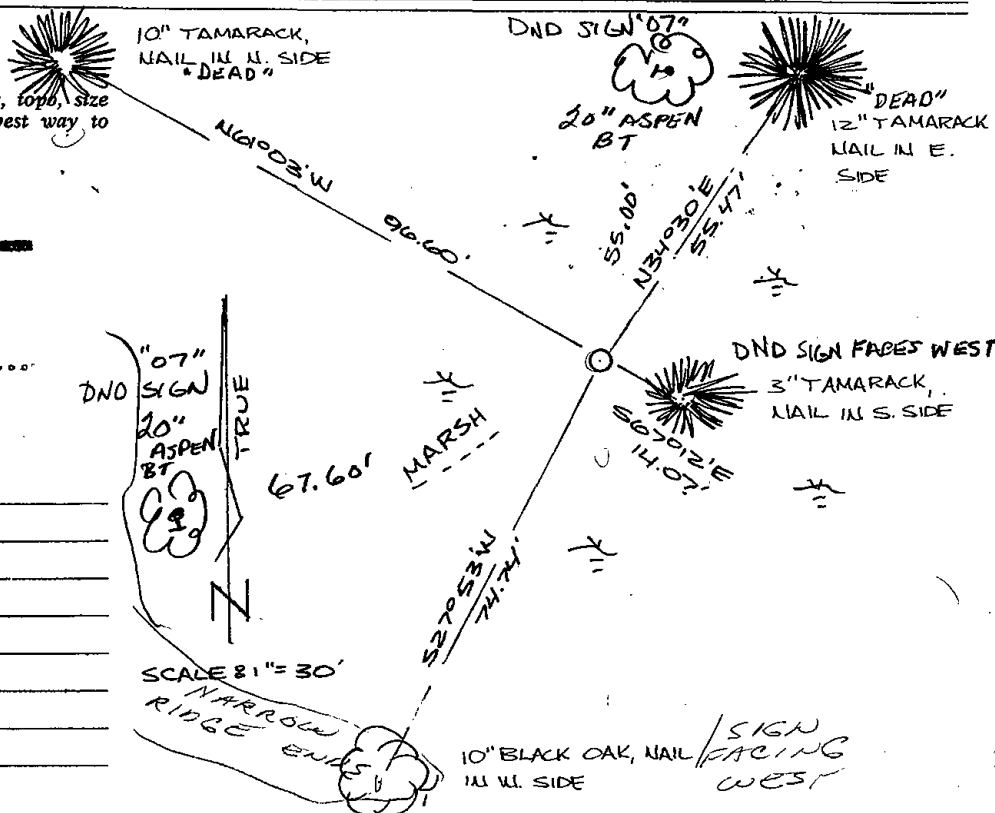 10" TAMARACK,
NAIL IN N. SIDE
"DEAD"
, topo, size
best way to
DND SIGN "07"
20" ASPEN
BT
"DEAD"
12" TAMARACK
NAIL IN E.
SIDE
N61°03'W
96.60'
55.00'
N34°30'E
55.47'
DND SIGN FACES WEST
3" TAMARACK,
NAIL IN S. SIDE
S67°12'E
14.07'
"07"
DND SIGN
20"
ASPEN
BT
TRUE
N
67.60'
MARSH
S27°53'W
74.74'
SCALE 1"=30'
NARROW
RIDGE ENDS
10" BLACK OAK, NAIL
IN W. SIDE
SIGN
FACING
WEST